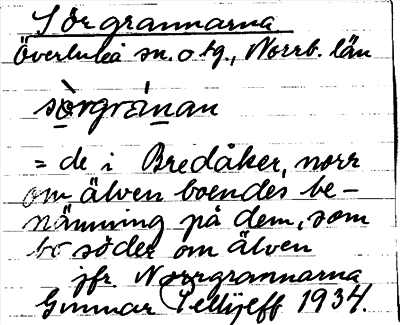 Sörgrannarna
Överluleå sn. o tg., Norrb. län
sòrgránan
= de i Bredåker, norr
om älven boendes be-
nämning på dem, som
bo söder om älven
jfr Norrgrannarna
Gunnar Pellijeff 1934.